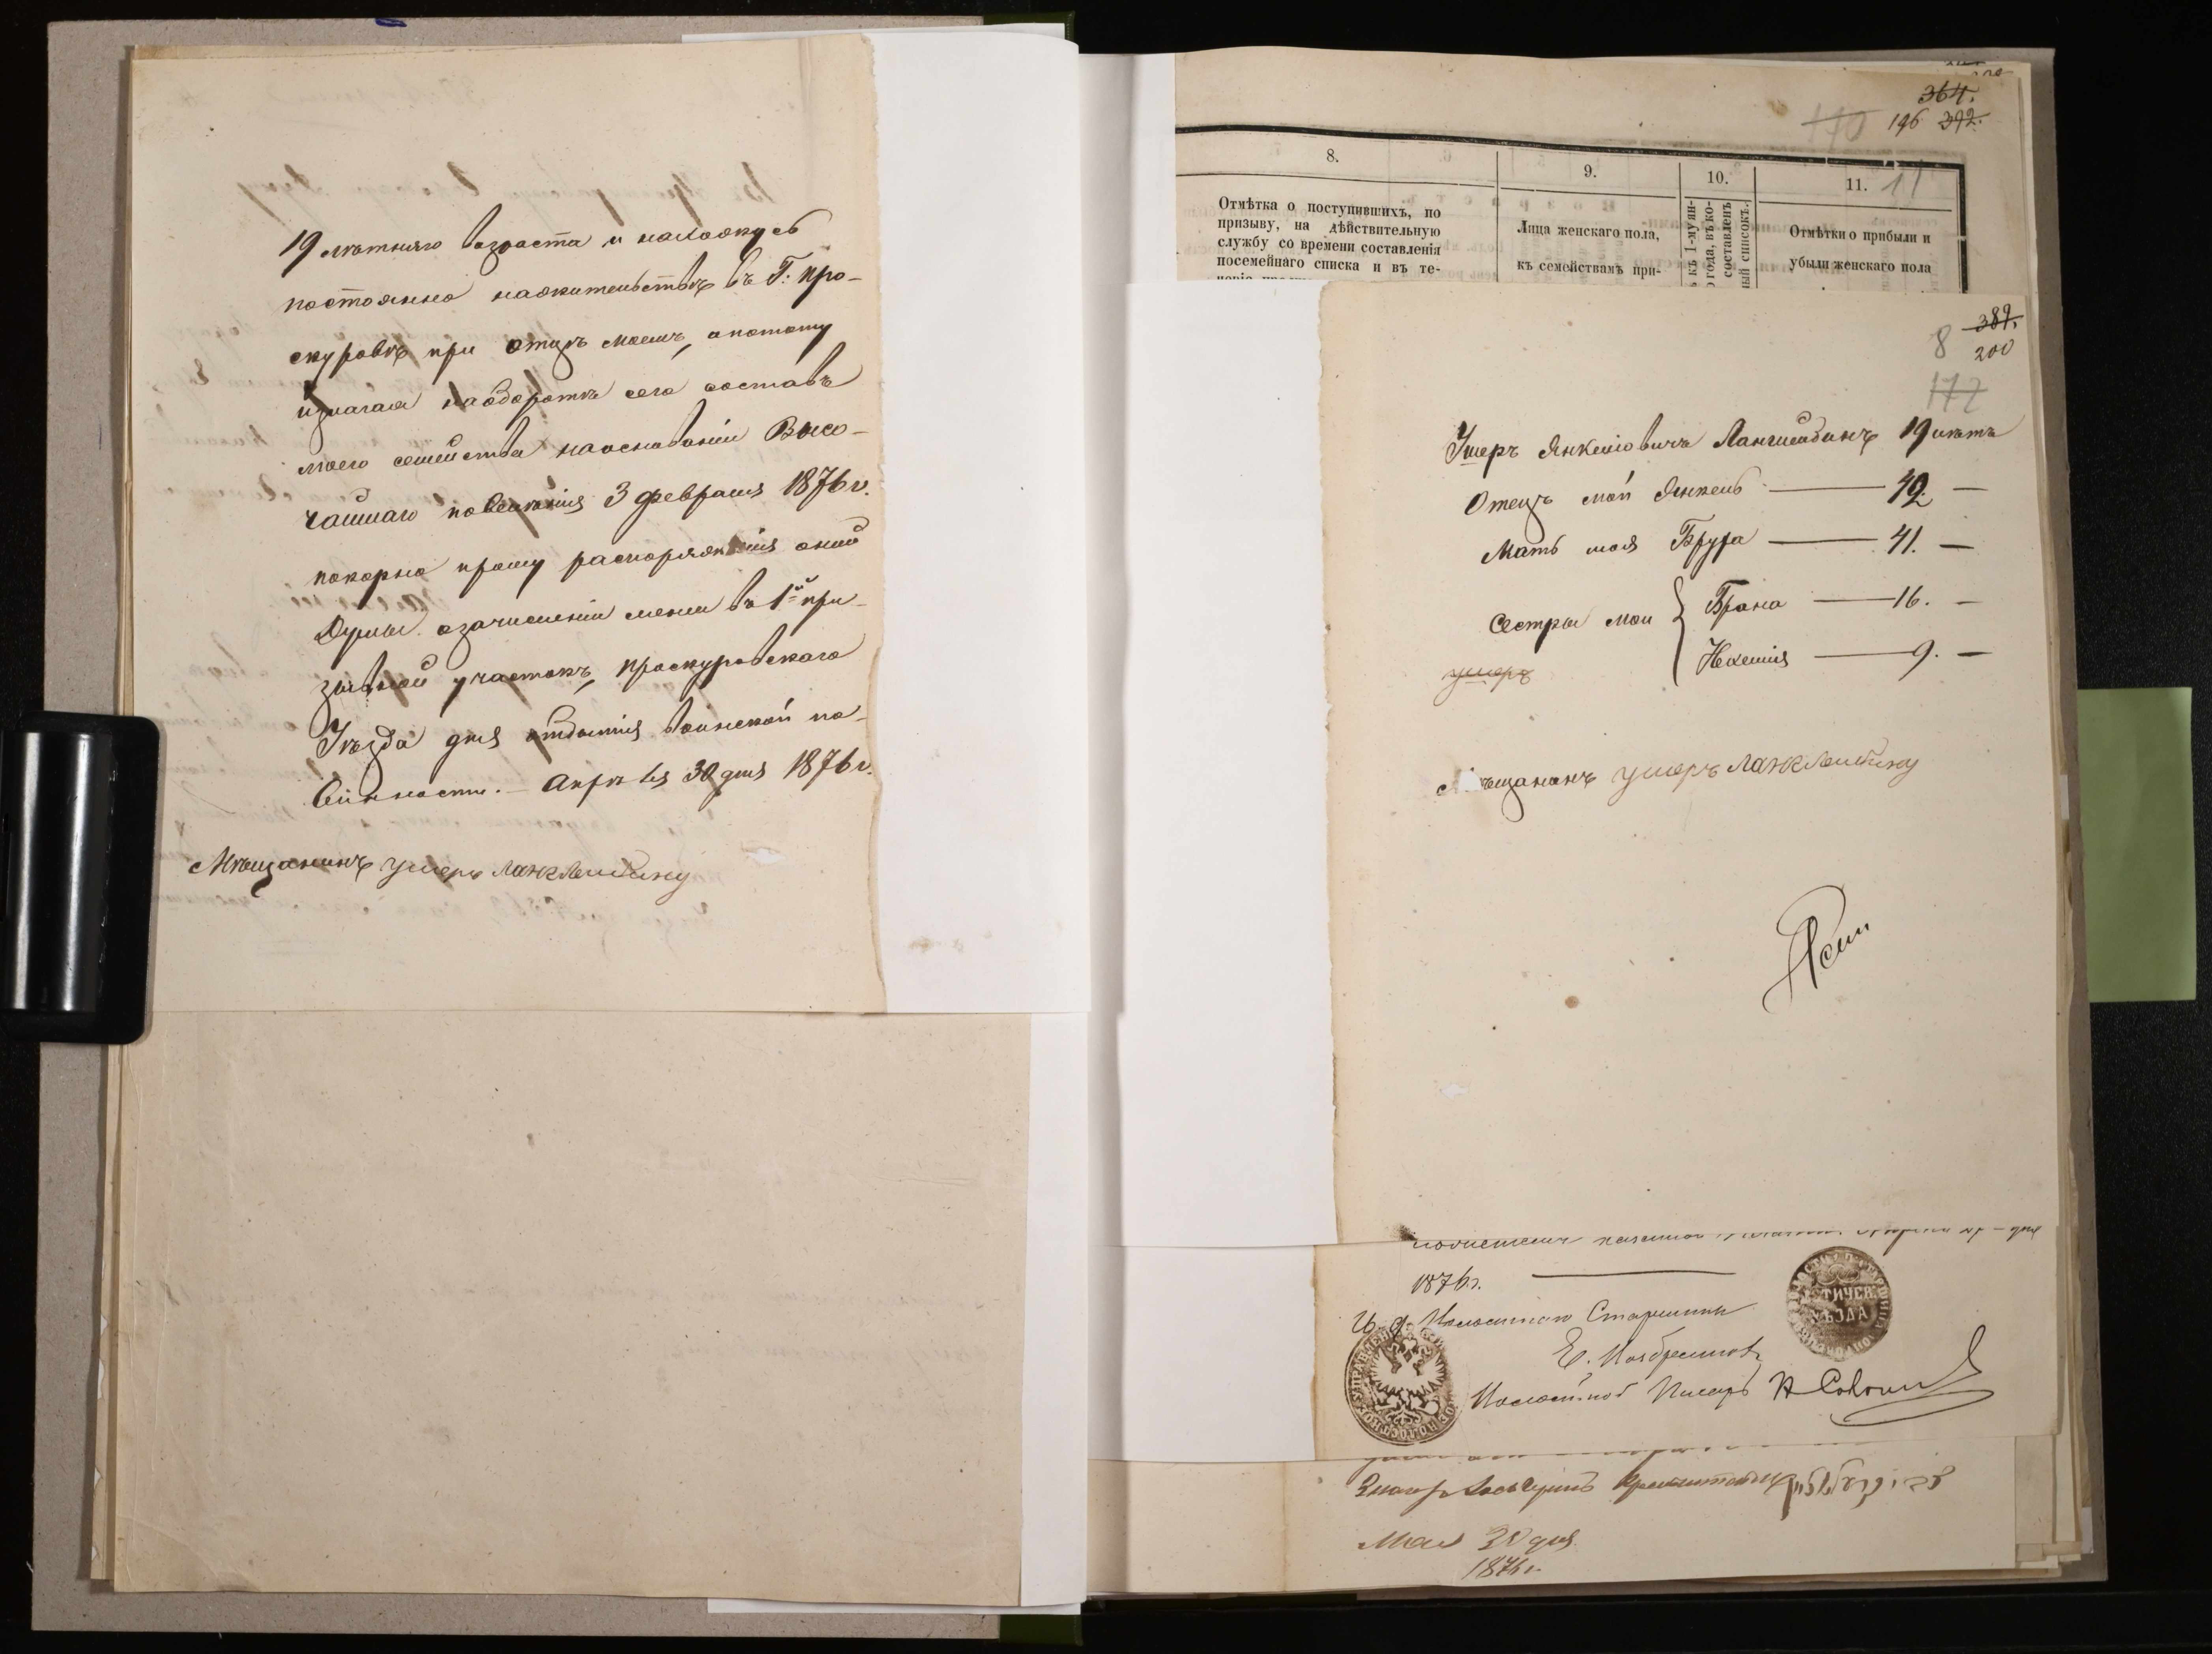 19 лѣтняго возраста и нахожусь
постоянно на жительствѣ въ Г. Про-
скуровѣ при отцѣ моемъ, а потому
излагая на оборотѣ сего составъ
моего семейства на основаніи Высо-
чайшаго повелѣнія 3 февраля 1876 г.
покорно прошу распоряженія оной
Думы о зачисленіи меня въ 1й при-
зывной участокъ, Проскуровскаго
Уѣзда для отбытія воинской по-
винности. — Апрѣля 30 дня 1876 г.
Мѣщанинъ Ушеръ Ланклейбину
364.
170 196 392.
8.
9.
10.
11. 11
Отмѣтка о поступившихъ, по
призыву, на дѣйствительную
службу со времени составленія
посемейнаго списка и въ те-
Лица женскаго пола,
къ семействамъ при-
къ 1-му ян-
года, въ ко-
составленъ
ый списокъ.
Отмѣтки о прибыли и
убыли женскаго пола
389.
8 200
177
Ушеръ Янкелiовичъ Лангилейбинъ 19 лѣтъ
Отецъ мой Янкель — 42. —
Мать моя Брура — 41. —
Сестры мои { Брана — 16. —
Нехемія — 9. —
ушеръ
Мѣщанинъ Ушеръ Ланклейбину
1876 г.
И. д. Волостнаго Старшины
ТИЧЕВ
УѢЗДА
Волостной Писарь
Мая 30 дня
1876 г.